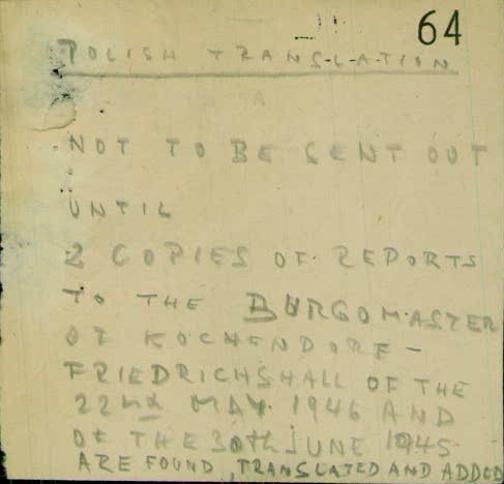 64
POLISH TRANSLATION
NOT TO BE SENT OUT
UNTIL
2 COPIES OF REPORTS
TO THE BURGOMASTER
OF KOCHENDORF -
FRIEDRICHSHALL OF THE
22nd MAY 1946 AND
OF THE 30th JUNE 1945
ARE FOUND, TRANSLATED AND ADDED